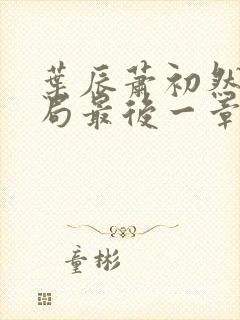 葉辰蕭初然
局最後一章
童彬